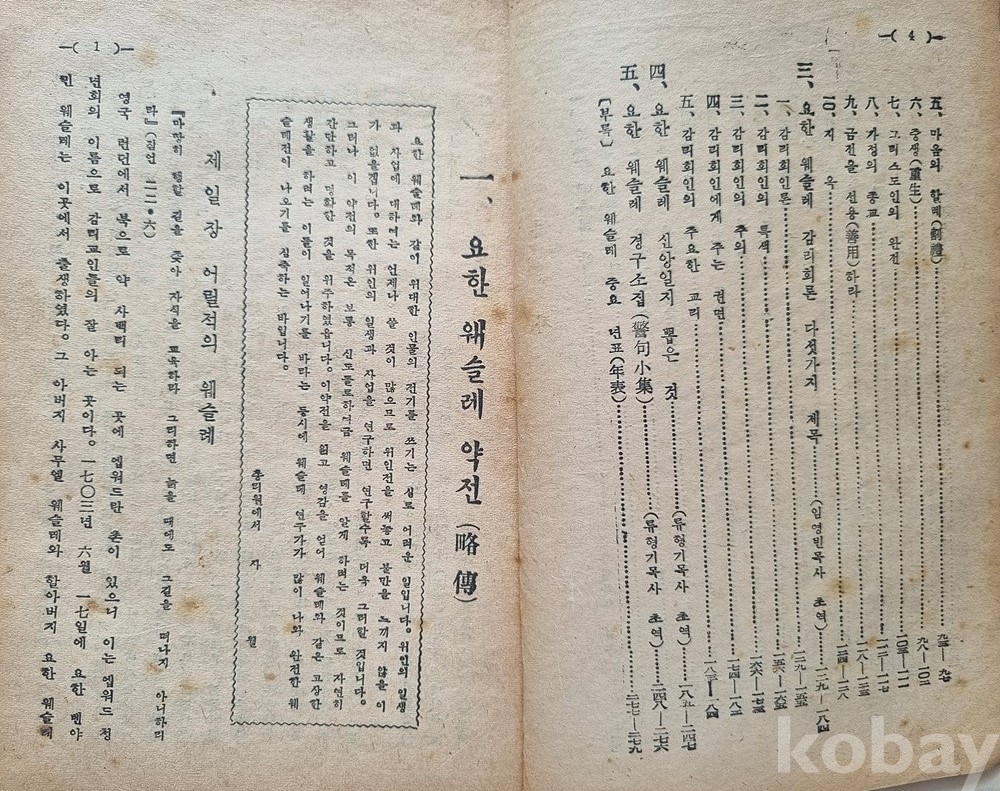 —( 4 )—
五、마음의 할례(割禮)……九三—九七
六、중생(重生)……九八—一〇二
七、그리스도인의 완전……一〇三—一一一
八、가정의 종교……一一二—一一七
九、금전을 선용(善用)하라……
一〇、지 옥……
三、요한 웨슬레 감리회론 다섯가지 제목 (임영빈목사 초역)……一二九—一八四
一、감리회인론……
二、감리회인의 특색……
三、감리회인의 주의……
四、감리회인에게 주는 권면……
五、감리회인의 주요한 교리……
四、요한 웨슬레 신앙일지 뽑은 것……(류형기목사 초역)……一八五—二四七
五、요한 웨슬레 경구소집(警句小集)……(류형기목사 초역)……二四八—二七六
〔부록〕 요한 웨슬레 중요 년표(年表)……二七七—二七九
—( 1 )—
一、요한 웨슬레 약전(略傳)
요한 웨슬레와 같이 위대한 인물의 전기를 쓰기는 실로 어려운 일입니다。위인의 일생
과 사업에 대하여는 언제나 쓸 것이 많으므로 위인전을 써놓고 불만을 느끼지 않을 이
가 없을겝니다。또한 위인의 일생과 사업을 연구하면 연구할수록 더욱 그러할 것입니다。
그러나 이 약전의 목적은 보통 신도들로하여금 웨슬레를 알게 하려는 것이므로 자연히
간단하고 명확한 것을 위주하였읍니다。이약전을 읽고 영감을 얻어 웨슬레와 같은 고상한
생활을 하려는 이들이 일어나기를 바라는 동시에 웨슬레 연구가가 많이 나와 완전한 웨
슬레전이 나오기를 심축하는 바입니다。
총리원에서 자 월
제일장 어릴적의 웨슬레
『마땅히 행할 길을 좇아 자식을 교육하라 그리하면 늙을 때에도 그길을 떠나지 아니하리
라』(잠언 二二·六)
영국 런던에서 북으로 약 사백리 되는 곳에 엡워드란 촌이 있으니 이는 엡워드 청
년회의 이름으로 감리교인들의 잘 아는 곳이다。一七〇三년 六월 一七일에 요한 벤야
민 웨슬레는 이곳에서 출생하였다。그 아버지 사무엘 웨슬레와 할아버지 요한 웨슬레
kobay